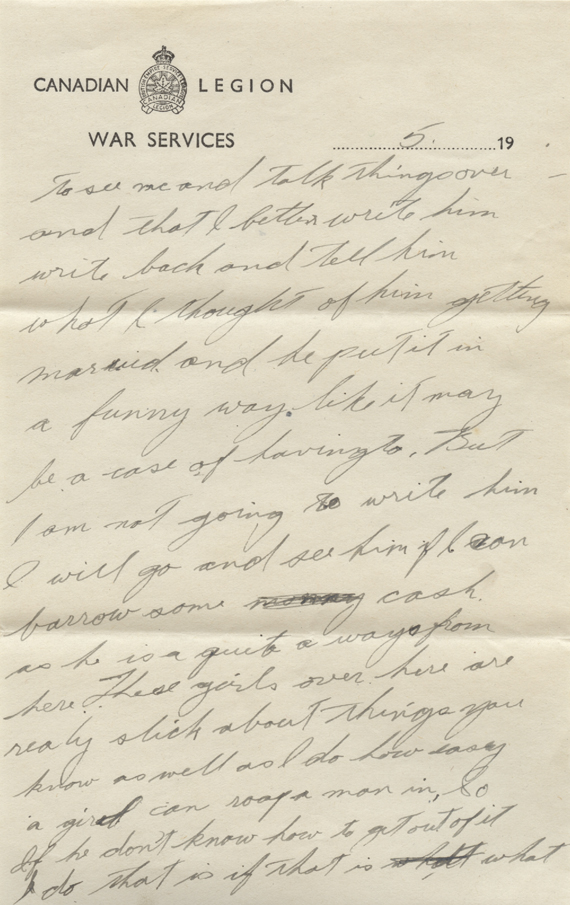 CANADIAN LEGION
WAR SERVICES 5. 19
To see me and talk things over –
and that I better write him
write back and tell him
what I thought of him getting
married. and he put it in
a funny way. like it may
be a case of having to. But
I am not going to write him
I will go and see him if I can
barrow some money cash.
as he is a quite a ways from
here. These girls over here are
realy slick about things you
know as well as I do how easy
a girl can roap a man in, So
If he don't know how to get out of it
I do that is if that is what what